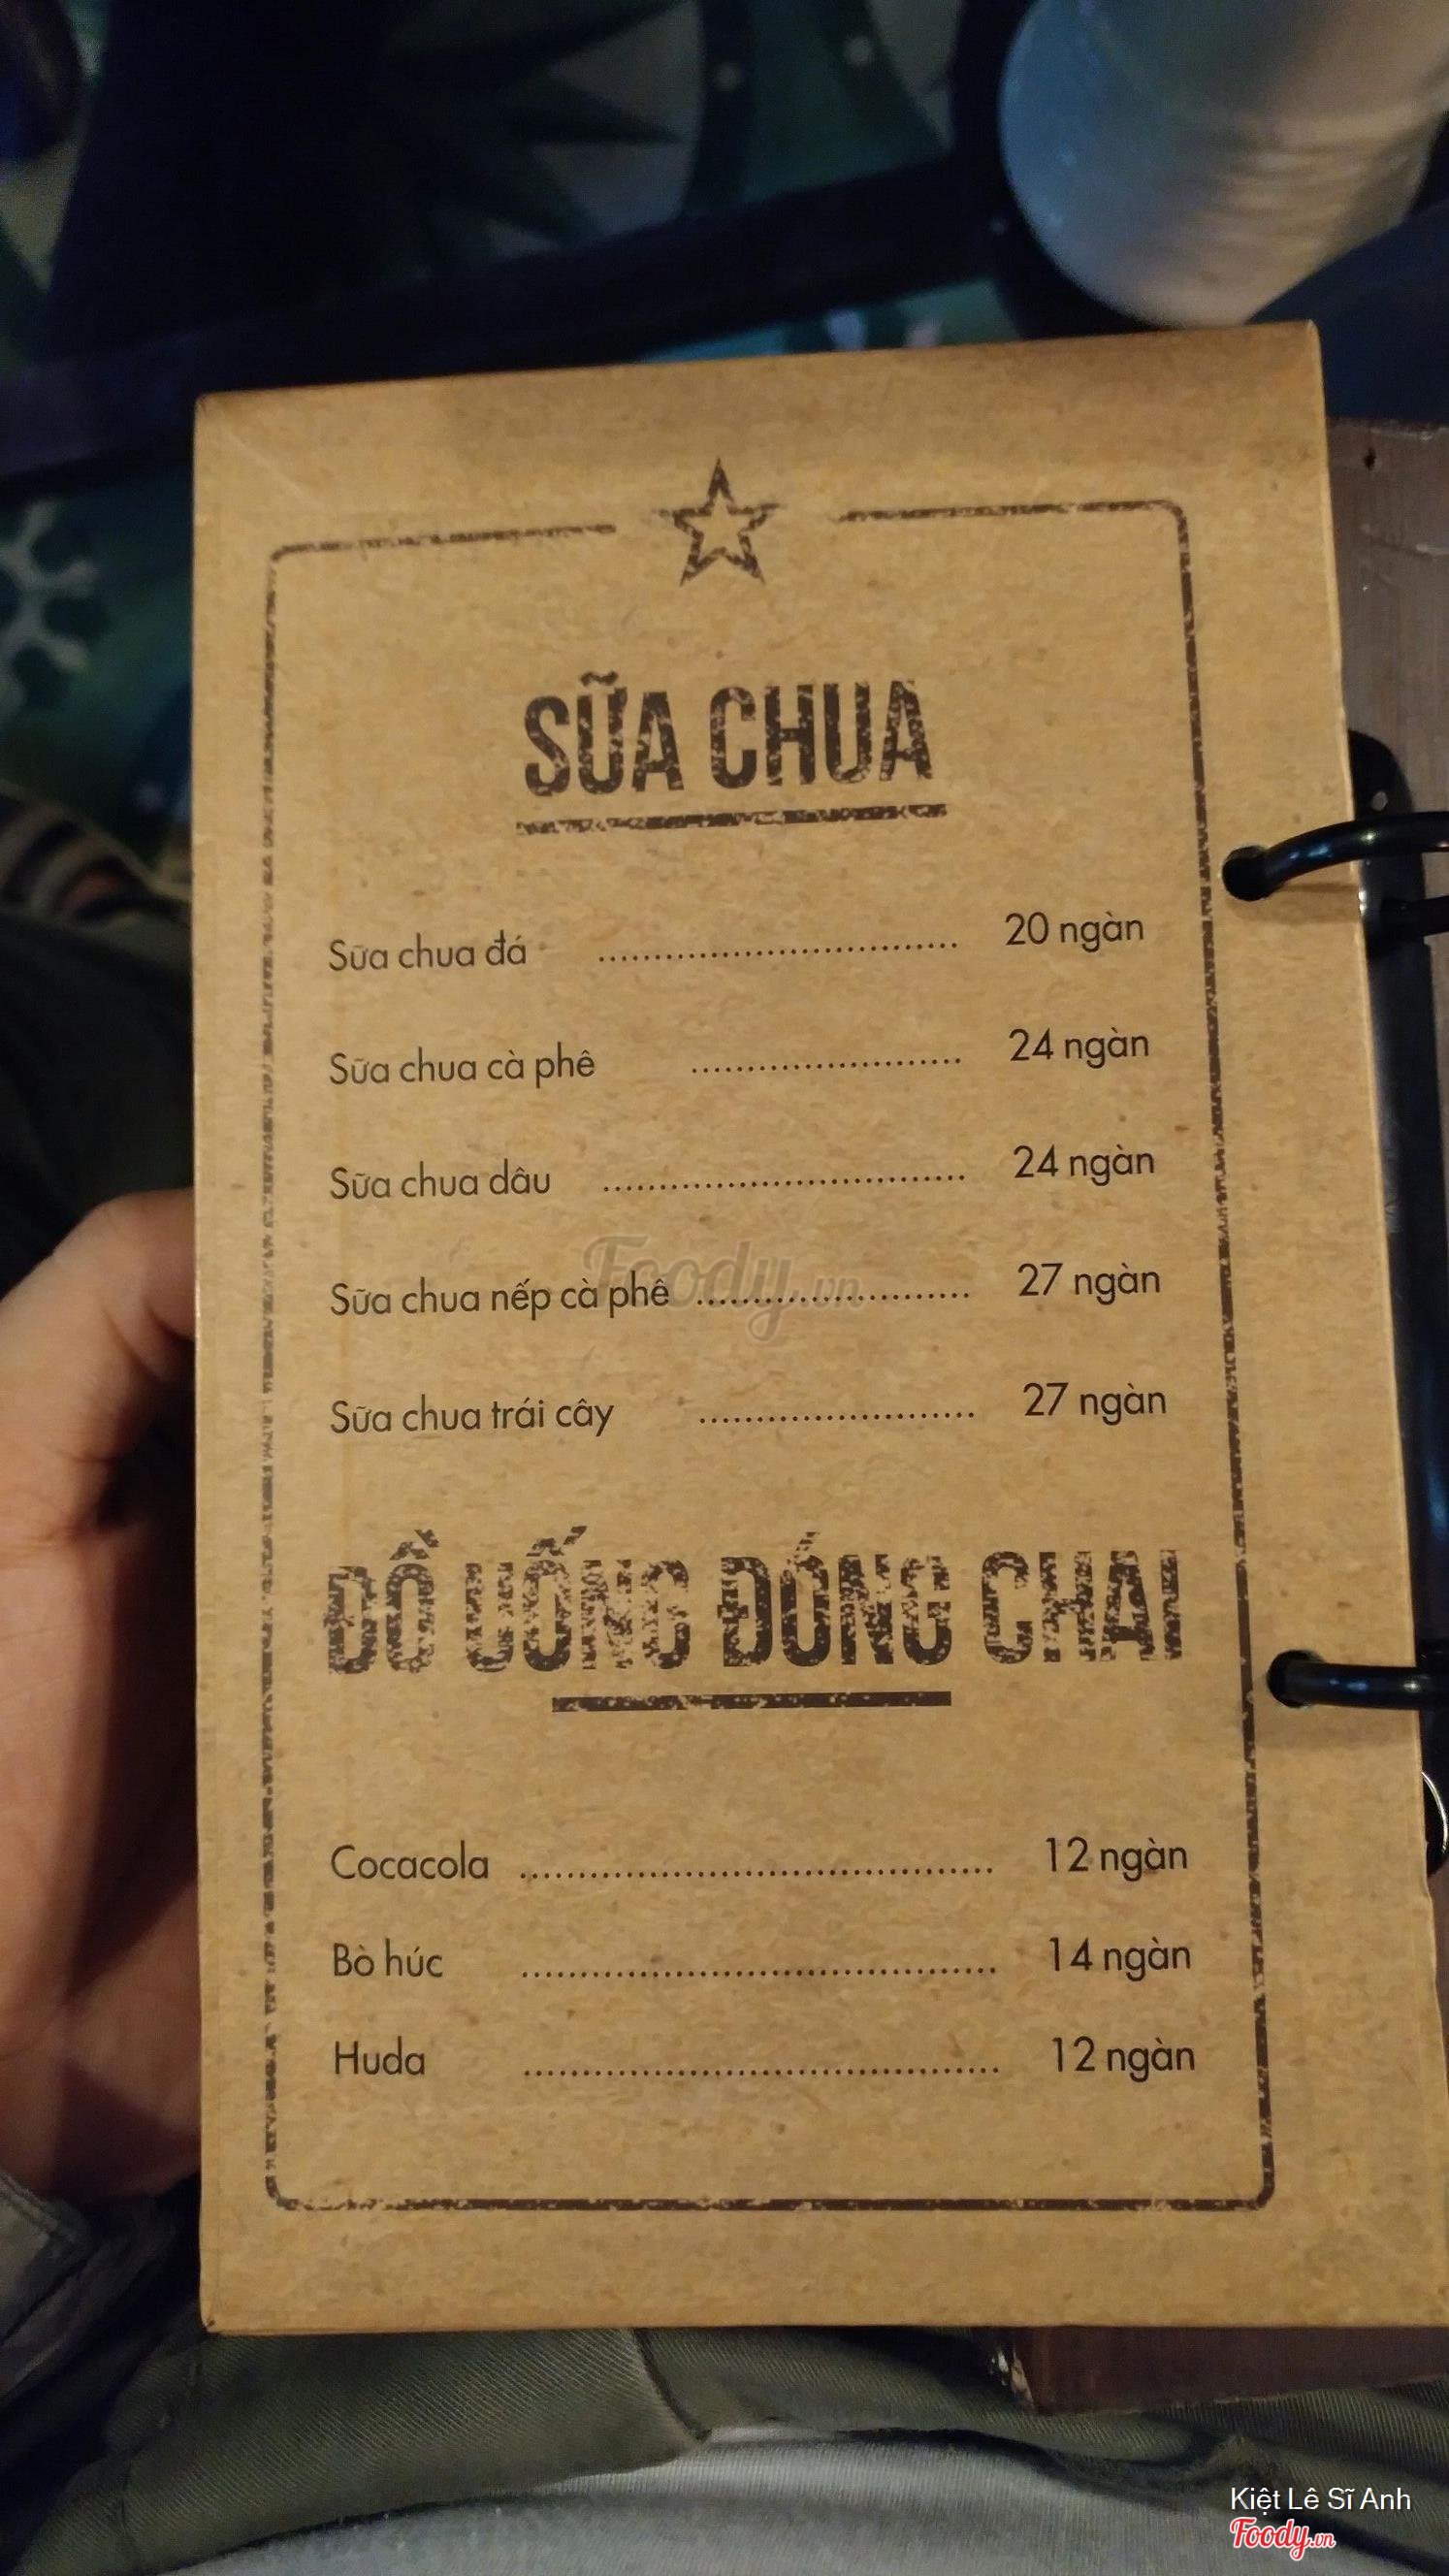 SỮA CHUA
Sữa chua đá .................................. 20 ngàn
Sữa chua cà phê ......................... 24 ngàn
Sữa chua dâu .................................. 24 ngàn
Sữa chua nếp cà phê .......................... 27 ngàn
Foody.vn
Sữa chua trái cây .......................... 27 ngàn
ĐỒ UỐNG ĐÓNG CHAI
Cocacola ............................................ 12 ngàn
Bò húc ............................................ 14 ngàn
Huda ............................................ 12 ngàn
Kiệt Lê Sĩ Anh
Foody.vn